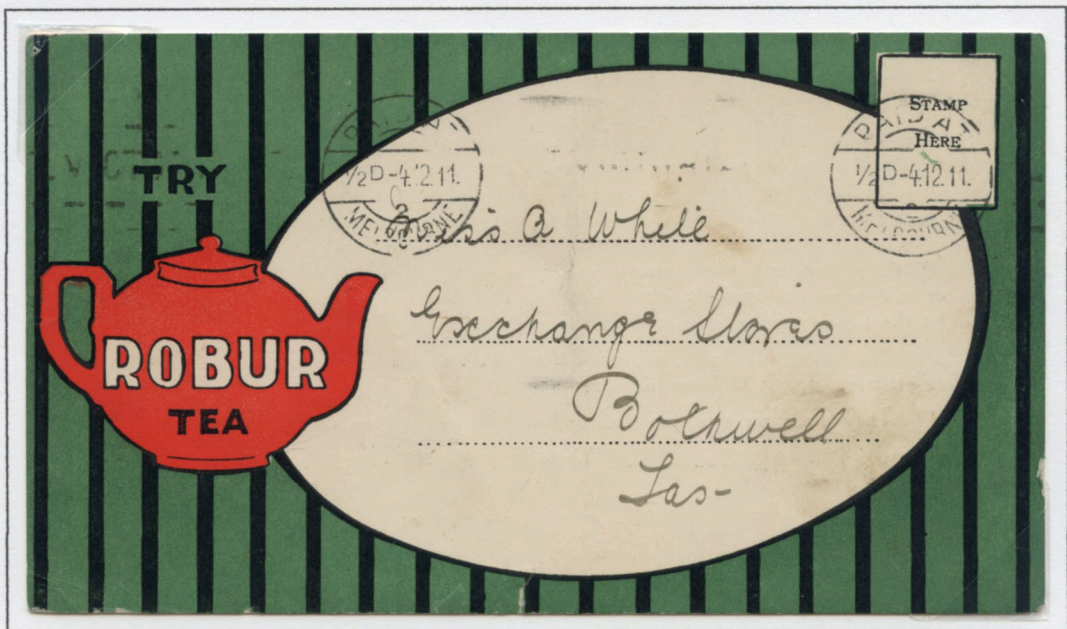 TRY
ROBUR
TEA
STAMP
HERE
PAID AT
½D-4.12.11.
MELBOURNE
PAID AT
½D-4.12.11.
MELBOURNE
Miss A White
Exechange Stores
Bothwell
Tas-